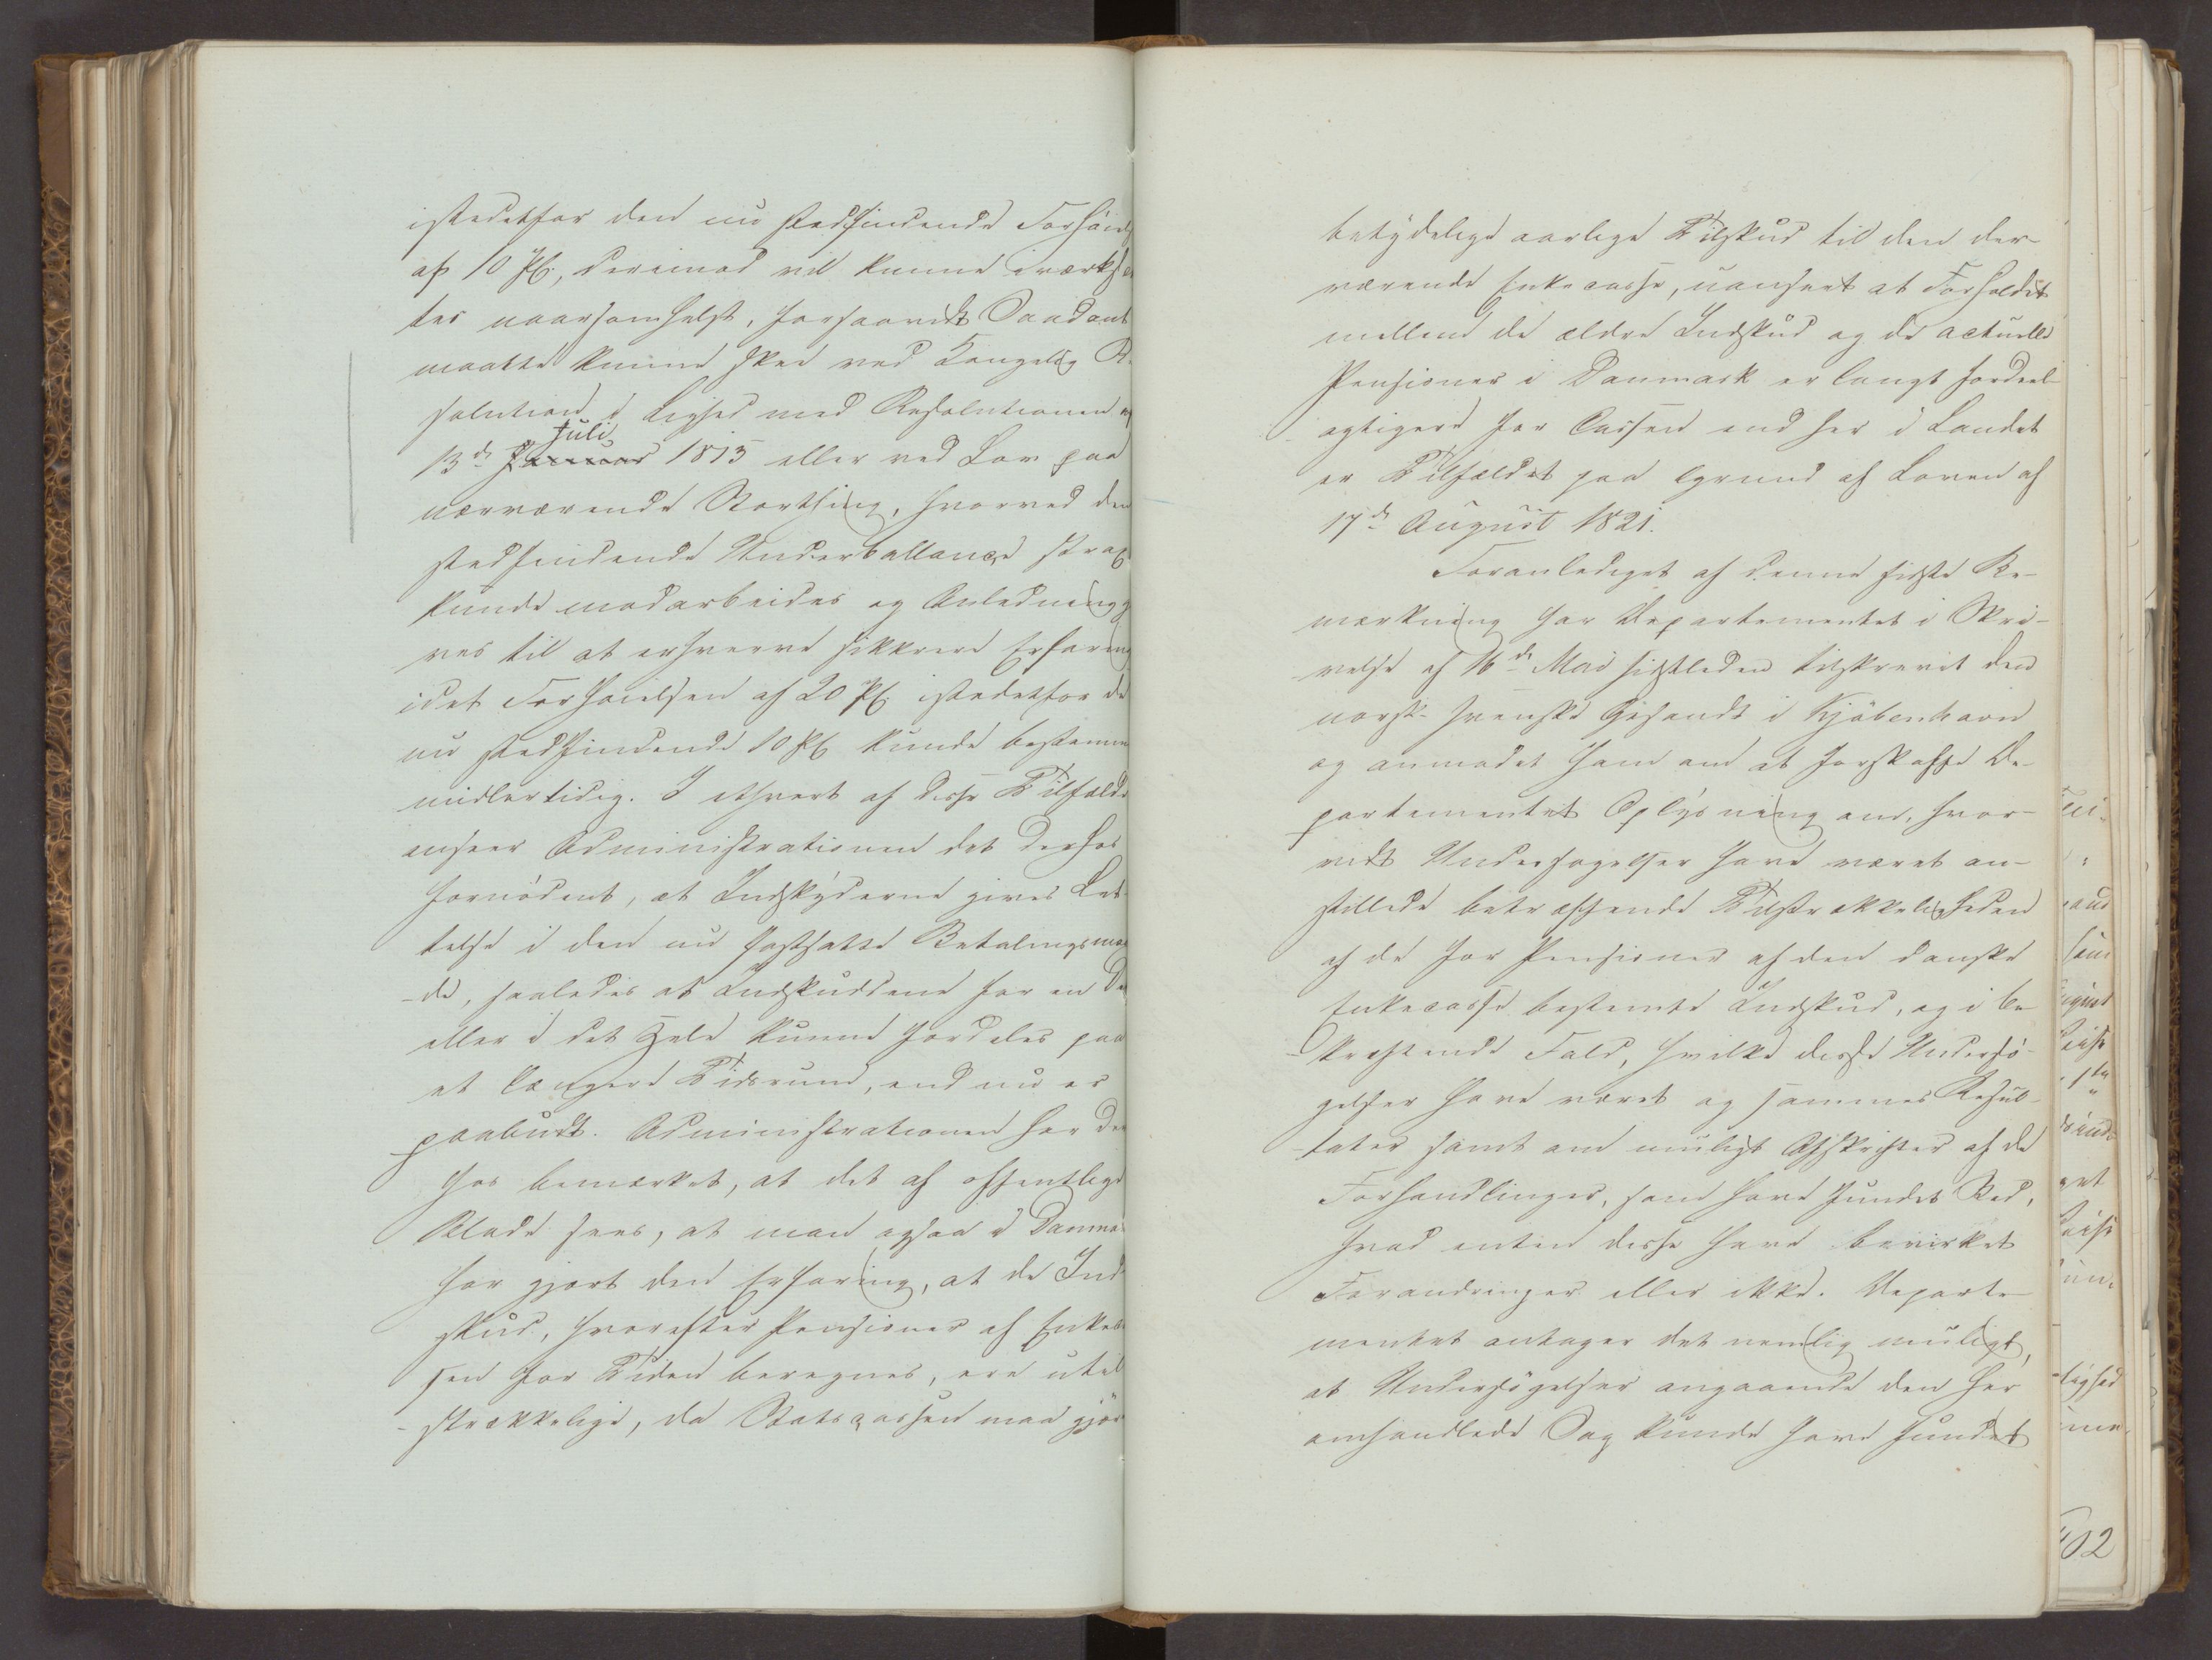 istedetfor den nu stedfindende Forhöi
af 10 pC, derimod vil kunne iværksæ
tes naarsomhelst, forsaavidt Saadant
maatte kunne skee ved Kongelig Re
solution i Lighed med Resolutionen af
Juli
13de Januar 1815 eller ved Lov paa
nærværende Storthing, hvorved den
stedfindende Underballance strax
kunde modarbeides og Anledning gi
ves til at erhverve sikkrere Erfaring
idet Forhøielsen af 20 pC istedetfor de
nu stedfindende 10 pC kunde bestemmes
midlertidig. I ethvert af disse Tilfælde
anseer Administrationen det derhos
fornödent, at Indskyderne gives Let-
telse i den nu fastsatte Betalingsmaa
-de, saaledes at Indskuddene for en De
eller i det Hele kunne fordeles paa
et længere Tidsrum, end nu er
paabudt. Administrationen har der
hos bemærket, at det af offentlige
Blade sees, at man ogsaa i Danma
har gjort den Erfaring, at de Ind-
skud, hvorefter Pensioner af Enkecas
sen for Tiden beregnes, ere util
-strækkelige, da Statscassen maa gjör
betydelige aarlige Tilskud til den der-
værende Enkecasse, uanseet at Forholdet
mellem de ældre Indskud og de actuelle
Pensioner i Danmark er langt fordeel-
agtigere for Cassen end her i Landet
er Tilfældet paa Grund af Loven af
17de August 1821.
Foranlediget af denne sidste Be-
mærkning har Departementet i Skri-
velse af 16de Mai sidstleden tilskrevet den
norsk-svenske Gesandt i Kjöbenhavn
og anmodet ham om at forskaffe De-
partementet Oplysning om, hvor-
vidt Undersøgelser have været an-
stillede betræffende Tilstrækkeligheden
af de for Pensioner af den danske
Enkecasse bestemte Indskud, og i be-
kræftende Fald, hvilke disse Undersö-
gelser have været og sammes Resul-
-tater samt om muligt Afskrifter af de
Forhandlinger, som have fundet Sted,
hvad enten disse have bevirket
Forandringer eller ikke. Departe-
mentet antager det nemlig muligt,
at Undersögelser angaaende den her
omhandlede Sag kunde have fundet